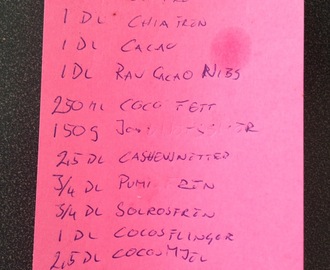 1 DL CHIA FRÖN
1 DL CACAO
1 DL RAW CACAO NIBS
250 ML COCO FETT
150g
2,5 DL CASHEWNÖTTER
3/4 DL
3/4 DL SOLROSFRÖN
1 DL COCOSFLINGOR
2,5 DL COCOSMJÖL